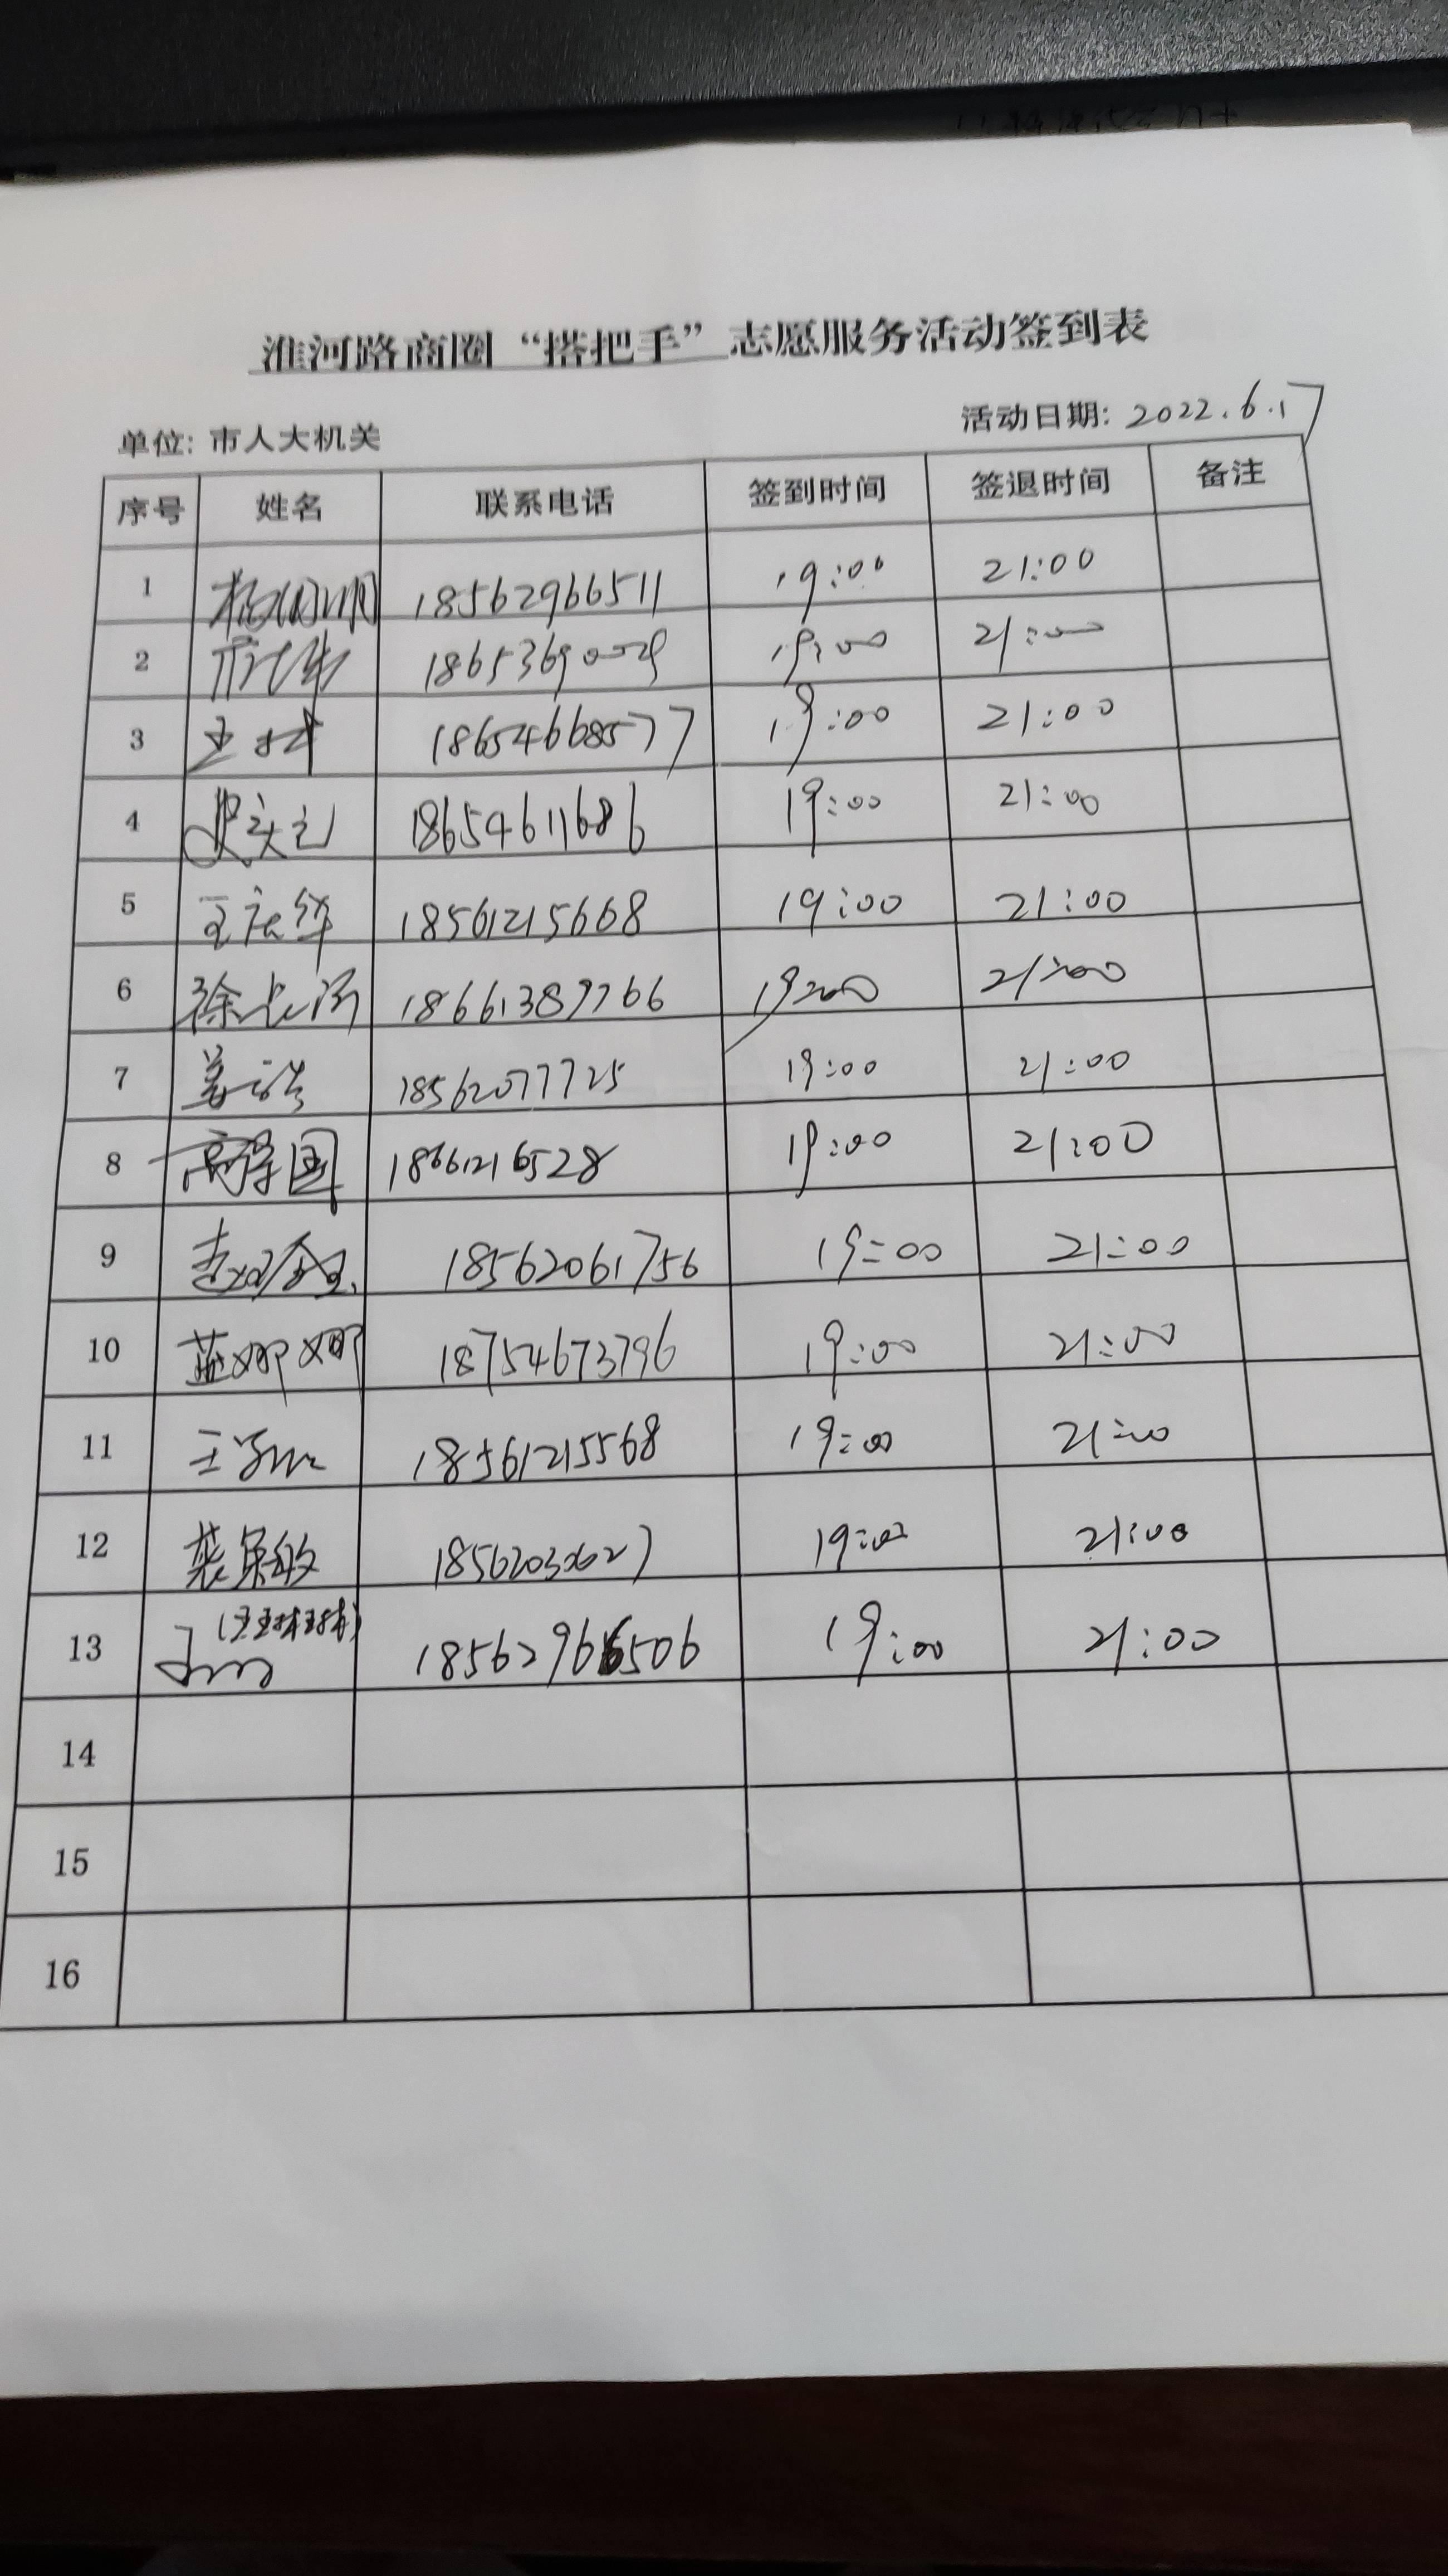 淮河路商圈“搭把手”志愿服务活动签到表
单位: 市人大机关 活动日期: 2022.6.17
序号 姓名 联系电话 签到时间 签退时间 备注
1 18562966511 19:00 21:00
2 19:00 21:00
3 18654668577 19:00 21:00
4 18654611686 19:00 21:00
5 18561215668 19:00 21:00
6 徐 18661389766 19:00 21:00
7 姜 18562077725 19:00 21:00
8 国 18661216528 19:00 21:00
9 18562061756 19:00 21:00
10 蓝娜娜 18754673796 19:00 21:00
11 王 18561215568 19:00 21:00
12 敏 19:00 21:00
13 18562966506 19:00 21:00
14
15
16